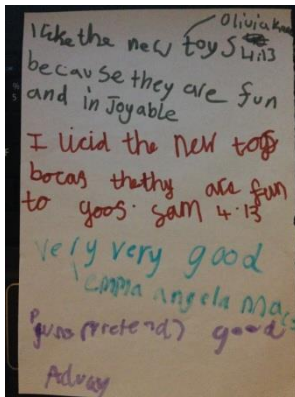 Olivia
I like the new toys 4:13
because they are fun
and in Joyable
I licid the new toys
bocas thethy are fun
to yoos. Sam 4.13
very very good
emma angela
(pretend) good
Advay